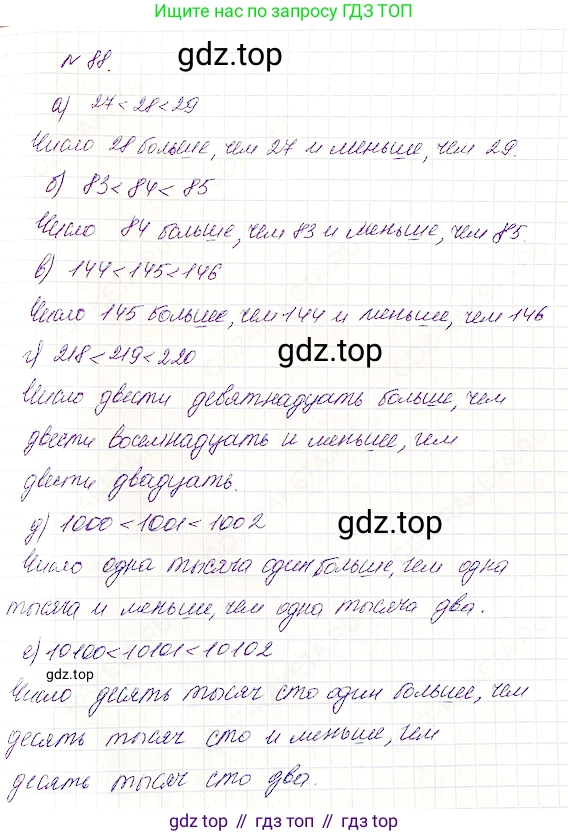 Ищите нас по запросу ГДЗ ТОП
gdz.top
№ 88.
а) 27 < 28 < 29
Число 28 больше, чем 27 и меньше, чем 29.
б) 83 < 84 < 85
Число 84 больше, чем 83 и меньше, чем 85.
в) 144 < 145 < 146
Число 145 больше, чем 144 и меньше, чем 146
г) 218 < 219 < 220
gdz.top
Число двести девятнадцать больше, чем
двести восемнадцать и меньше, чем
двести двадцать.
д) 1000 < 1001 < 1002
gdz.top
Число одна тысяча один больше, чем одна
тысяча и меньше, чем одна тысяча два.
е) 10100 < 10101 < 10102
gdz.top
Число десять тысяч сто один больше, чем
десять тысяч сто и меньше, чем
десять тысяч сто два.
gdz топ // гдз топ // gdz.top